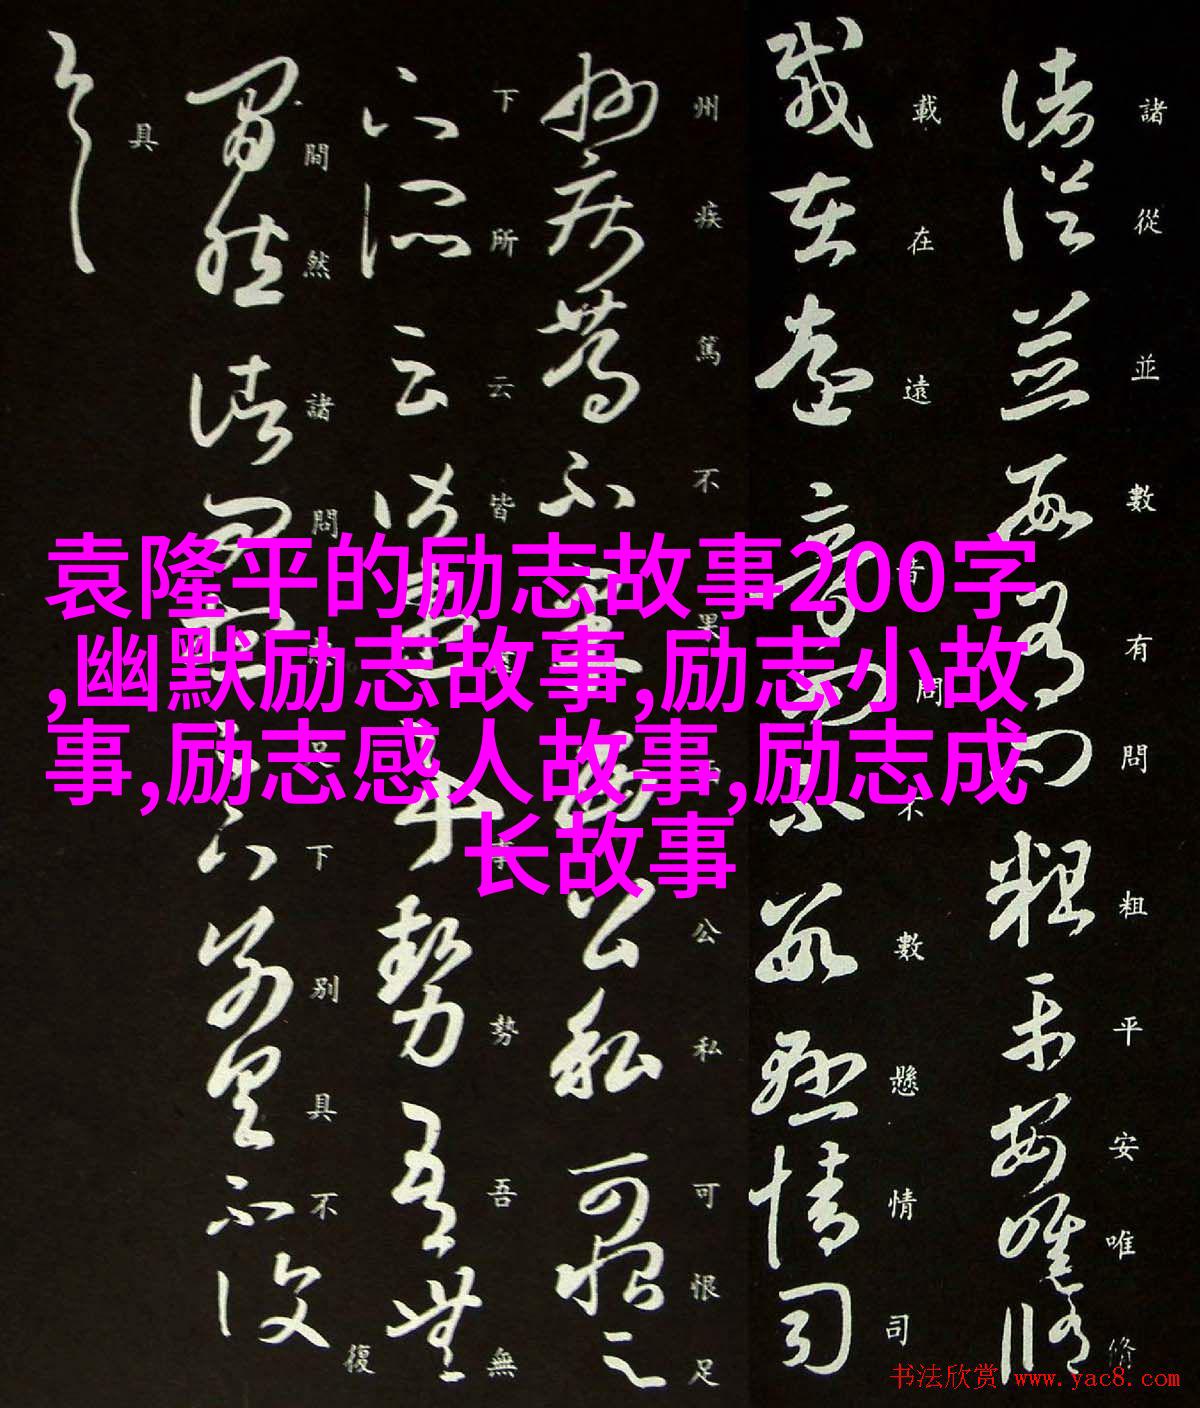 諸從並數有問粗平安唯修
載在遠音問不數懸情司
州疾篤不果公私可恨足
下所云皆事勢吾無
間然諸問足下別具不復
具
袁隆平的励志故事200字
,幽默励志故事,励志小故
事,励志感人故事,励志成
长故事
书法欣赏 www.yac8.com